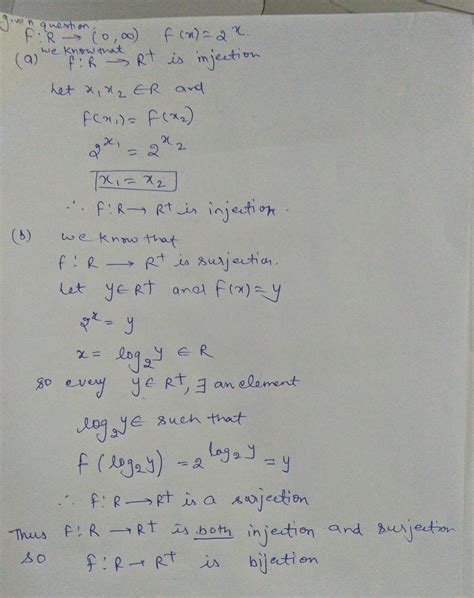 given question,
f : R → (0, ∞) f(x) = 2^x.
we know that
(a) f : R → R+ is injection
Let x₁, x₂ ∈ R and
f(x₁) = f(x₂)
2^x₁ = 2^x₂
x₁ = x₂
∴ f : R → R+ is injection.
(b) we know that
f : R → R+ is surjection.
Let y ∈ R+ and f(x) = y
2^x = y
x = log₂y ∈ R
so every y ∈ R+, ∃ an element
log₂y ∈ such that
f(log₂y) = 2^log₂y = y
∴ f : R → R+ is a surjection
Thus f : R → R+ is both injection and surjection
so f : R → R+ is bijection